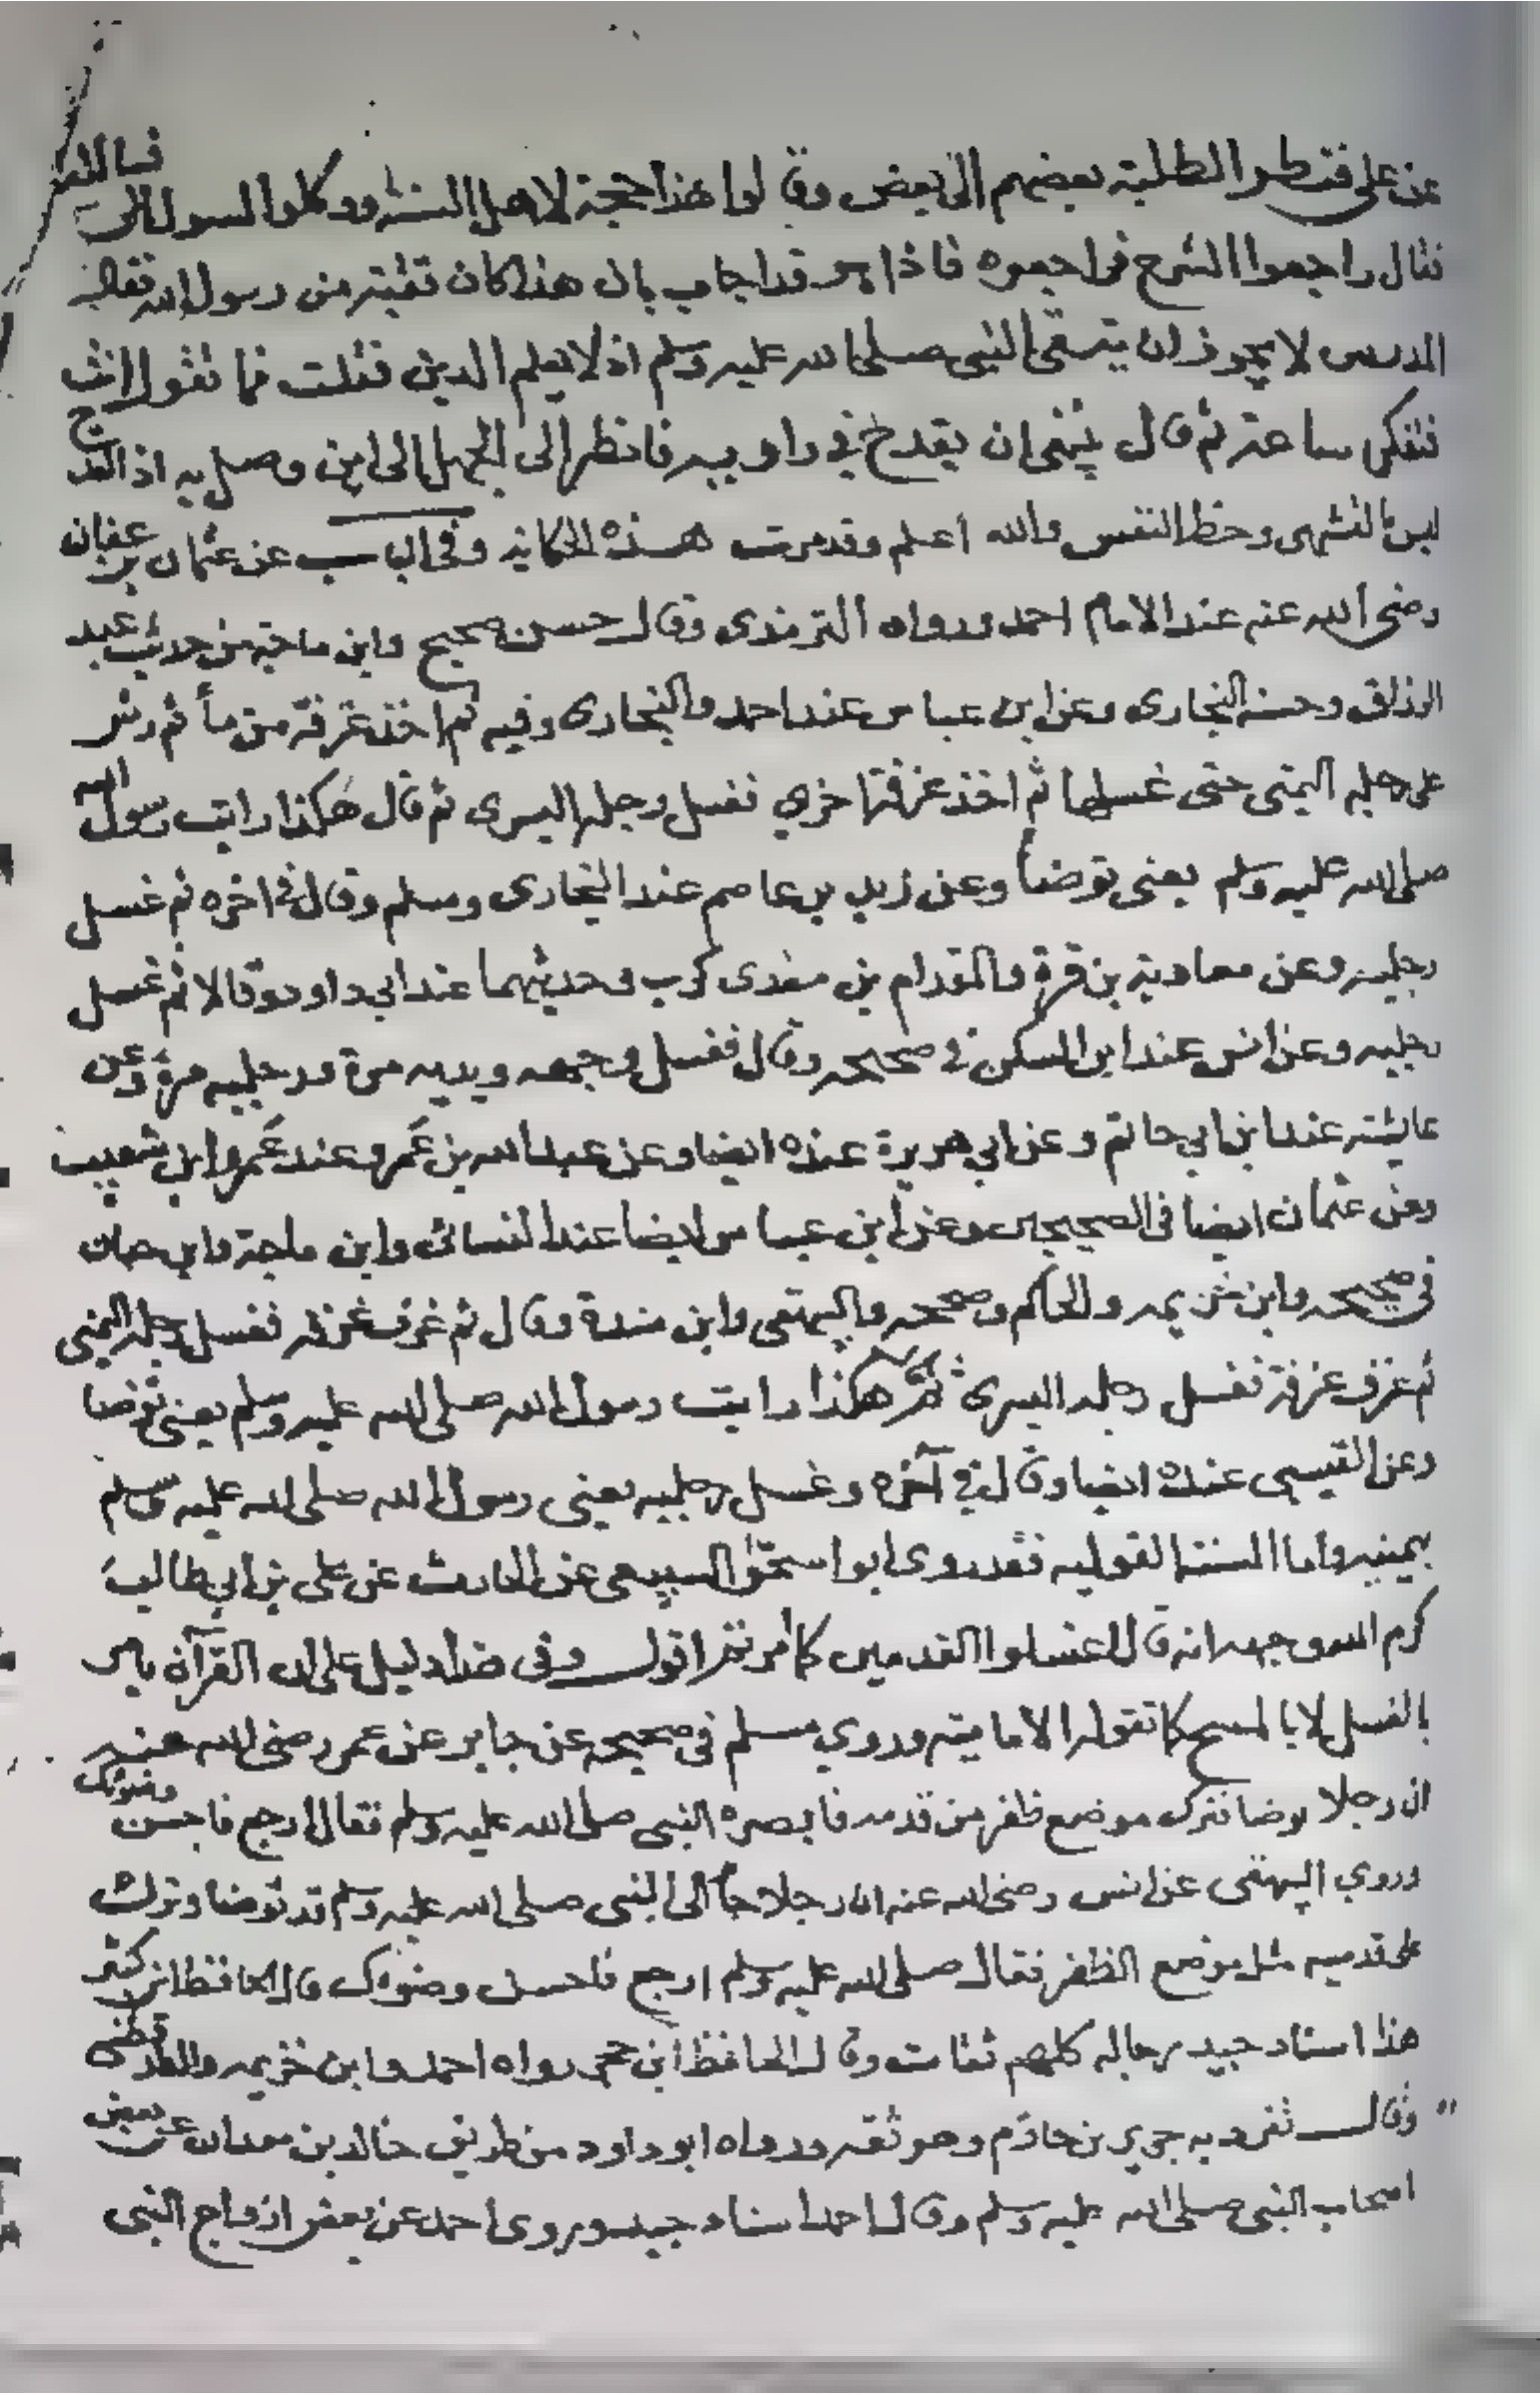 عن علي فنظر الطلبة بعضهم الى بعض وقالوا هذا حجة لاهل السنة ووكلوا السوال الى فسالته
فقال راجعوا الشرح فراجعوه فاذا هو قد اجاب بان هذا كان تقية من رسول الله فقال
المدرس لا يجوز ان يتقى النبى صلى الله عليه وسلم اذ لا يعلم الدين فقلت فما تقول انت
فتفكر ساعة ثم قال ينبغى ان يقدح في راويه فانظر الى الجهل الى اين وصل به اذ القدح
ليس بالتشهى وحظ النفس والله اعلم وقد مرت هذه الحكاية وفى الباب عن عثمان بن عفان
رضى الله عنه عند الامام احمد ورواه الترمذى وقال حسن صحيح وابن ماجة من حديث عبد
الرزاق وحسنه البخارى وعن ابن عباس عند احمد والبخارى وفيه ثم اخذ غرفة من ماء ثم رش
على رجله اليمنى حتى غسلها ثم اخذ غرفة اخرى فغسل رجله اليسرى ثم قال هكذا رايت رسول الله
صلى الله عليه وسلم يعنى توضأ وعن زيد بن عاصم عند البخارى ومسلم وقال فى اخره ثم غسل
رجليه وعن معاوية بن قرة والمقدام بن معدى كرب وحديثهما عند ابي داود وقالا ثم غسل
رجليه وعن انس عند ابن السكن في صحيحه وقال فغسل وجهه ويديه مرة ورجليه مرة وعن
عايشه عند ابن ابي حاتم وعن ابي هريرة عنده ايضا وعن عبد الله بن عمر وعند عمرو ابن شعيب
وعن عثمان ايضا فى الصحيحين وعن ابن عباس ايضا عند النسائى وابن ماجة وابن حبان
فى صحيحه وابن خزيمه والحاكم وصححه والبيهقى وابن مندة وقال ثم غرف غرفة فغسل رجله اليمنى
ثم غرف غرفة فغسل رجله اليسرى ثم هكذا رايت رسول الله صلى الله عليه وسلم يعنى توضا
وعن القيسى عنده ايضا وقال في آخره وغسل رجليه يعنى رسول الله صلى الله عليه وسلم
بيمينه واما السنة القوليه فقد روى ابو اسحق السبيعى عن الحارث عن على بن ابي طالب
كرم الله وجهه انه قال اغسلوا القدمين كما امرتم اقول وفى هذا دليل على ان القرآن يامر
بالغسل لا بالمسح كما تقوله الامامية وروي مسلم فى صحيحه عن جابر عن عمر رضى الله عنه
ان رجلا توضا فترك موضع ظفر من قدمه فابصره النبى صلى الله عليه وسلم فقال ارجع فاحسن وضوئك
وروي البيهقى عن انس رضى الله عنه ان رجلا جاء الى النبى صلى الله عليه وسلم قد توضا وترك
على قدميه مثل موضع الظفر فقال صلى الله عليه وسلم ارجع فاحسن وضوءك قال الحافظ ابن كثير
هذا اسناد جيد رجاله كلهم ثقات وقال الحافظ ابن حجر رواه احمد وابن خزيمه والدارقطنى
وقال تفرد به جرير بن حازم وهو ثقه ورواه ابو داود من طريق خالد بن معدان عن بعض
اصحاب النبى صلى الله عليه وسلم وقال احمد اسناد جيد وروى احمد عن بعض ازواج النبى